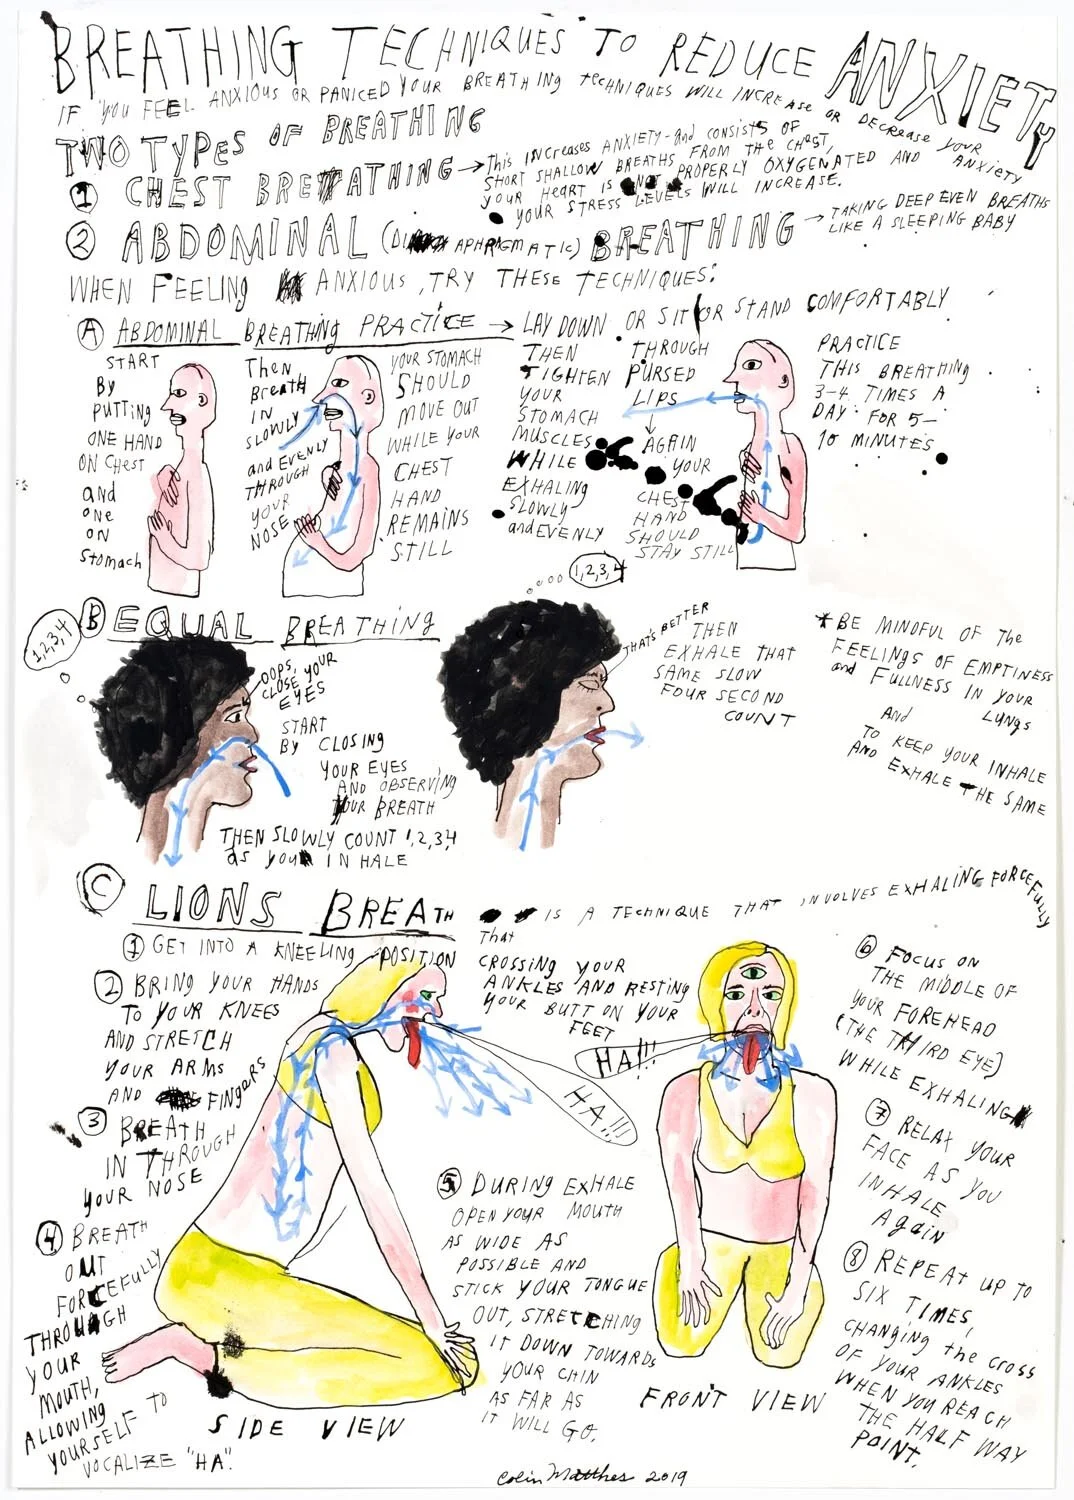 BREATHING TECHNIQUES TO REDUCE ANXIETY
IF YOU FEEL ANXIOUS OR PANICED YOUR BREATHING techNIQUES WILL INCREase OR DECREase YOUR ANXIETY
TWO TYPES OF BREATHING
1 CHEST BREATHING → This INCREASES ANXIETY-and CONSISTS OF
SHORT SHALLOW BREATHS FROM the CHEST,
YOUR HEART IS NOT PROPERLY OXYGENATED AND
YOUR STRESS LEVELS WILL INCREASE.
2 ABDOMINAL (DIAPHRAGMATIC) BREATHING → TAKING DEEP EVEN BREATHS
LIKE A SLEEPING BABY
WHEN FEELING ANXIOUS, TRY THESE TECHNIQUES:
A ABDOMINAL BREATHING PRACTICE → LAY DOWN OR SIT OR STAND COMFORTABLY
START
By
PUTTING
ONE HAND
ON CHEST
and
oNe
ON
Stomach
Then
BReatH
IN
SLOWLY
and EVENLY
THROUGH
YOUR
NOSE
YOUR STOMACH
SHOULD
MOVE OUT
WHILE YOUR
CHEST
HAND
REMAINS
STILL
THEN
TIGHTEN
YOUR
STOMACH
MUSCLES
WHILE
EXHALING
SLOWLY
and EVENLY
THROUGH
PURSED
LIPS
↓
AGAIN
YOUR
CHEST
HAND
SHOULD
STAY STILL
PRACTICE
THIS BREATHING
3-4 TIMES A
DAY FOR 5-
10 MINUTES
B EQUAL BREATHING
1,2,3,4
OOPS, YOUR
CLOSE YOUR
EYES
START
BY CLOSING
YOUR EYES
AND OBSERVING
YOUR BREATH
THEN SLOWLY COUNT 1,2,3,4
as YOU INHALE
1,2,3,4
THAT'S BETTER
THEN
EXHALE THAT
SAME SLOW
FOUR SECOND
COUNT
*BE MINDFUL OF The
FEELINGS OF EMPTINESS
and FULLNESS IN YOUR
LUNGS
And
TO KEEP YOUR INHALE
AND EXHALE THE SAME
C LIONS BREATH IS A TECHNIQUE THAT INVOLVES EXHALING FORCEFULLY
1 GET INTO A KNEELING POSITION
That
CROSSING YOUR
ANKLES AND RESTING
YOUR BUTT ON YOUR
FEET
2 BRING YOUR HANDS
TO YOUR KNEES
AND STRETCH
YOUR ARMS
AND FINGERS
3 BREATH
IN THROUGH
YOUR NOSE
4 BREATH
OUT
FORCEFULLY
THROUGH
YOUR
MOUTH,
ALLOWING
YOURSELF TO
VOCALIZE "HA".
HA!!!
HA!!!
5 DURING EXHALE
OPEN YOUR MOUTH
AS WIDE AS
POSSIBLE AND
STICK YOUR TONGUE
OUT, STRETCHING
IT DOWN TOWARDS
YOUR CHIN
AS FAR AS
IT WILL GO.
6 FOCUS ON
THE MIDDLE OF
YOUR FOREHEAD
(THE THIRD EYE)
WHILE EXHALING
7 RELAX YOUR
FACE AS YOU
INHALE
AGaiN
8 REPEAT UP TO
SIX TIMES,
CHANGING the CROSS
OF YOUR ANKLES
WHEN YOU REACH
THE HALF WAY
POINT.
SIDE VIEW
FRONT VIEW
Colin Matthes 2019